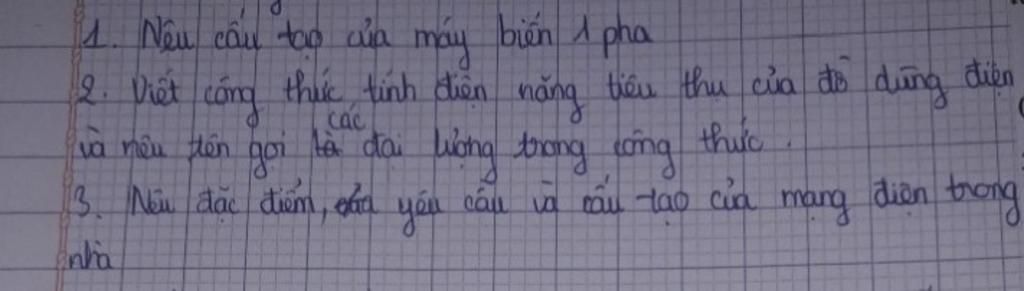 1. Nêu cấu tạo của máy biến 1 pha
2. Viết công thức tính điện năng tiêu thụ của đồ dùng điện
và nêu tên gọi các đại lượng trong công thức.
3. Nêu đặc điểm, yêu cầu và cấu tạo của mạng điện trong
nhà